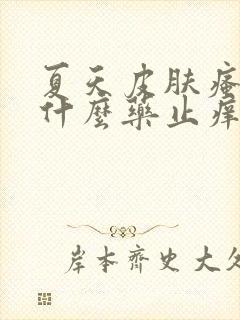 夏天皮肤瘙
什麼藥止痒
岸本齊史大